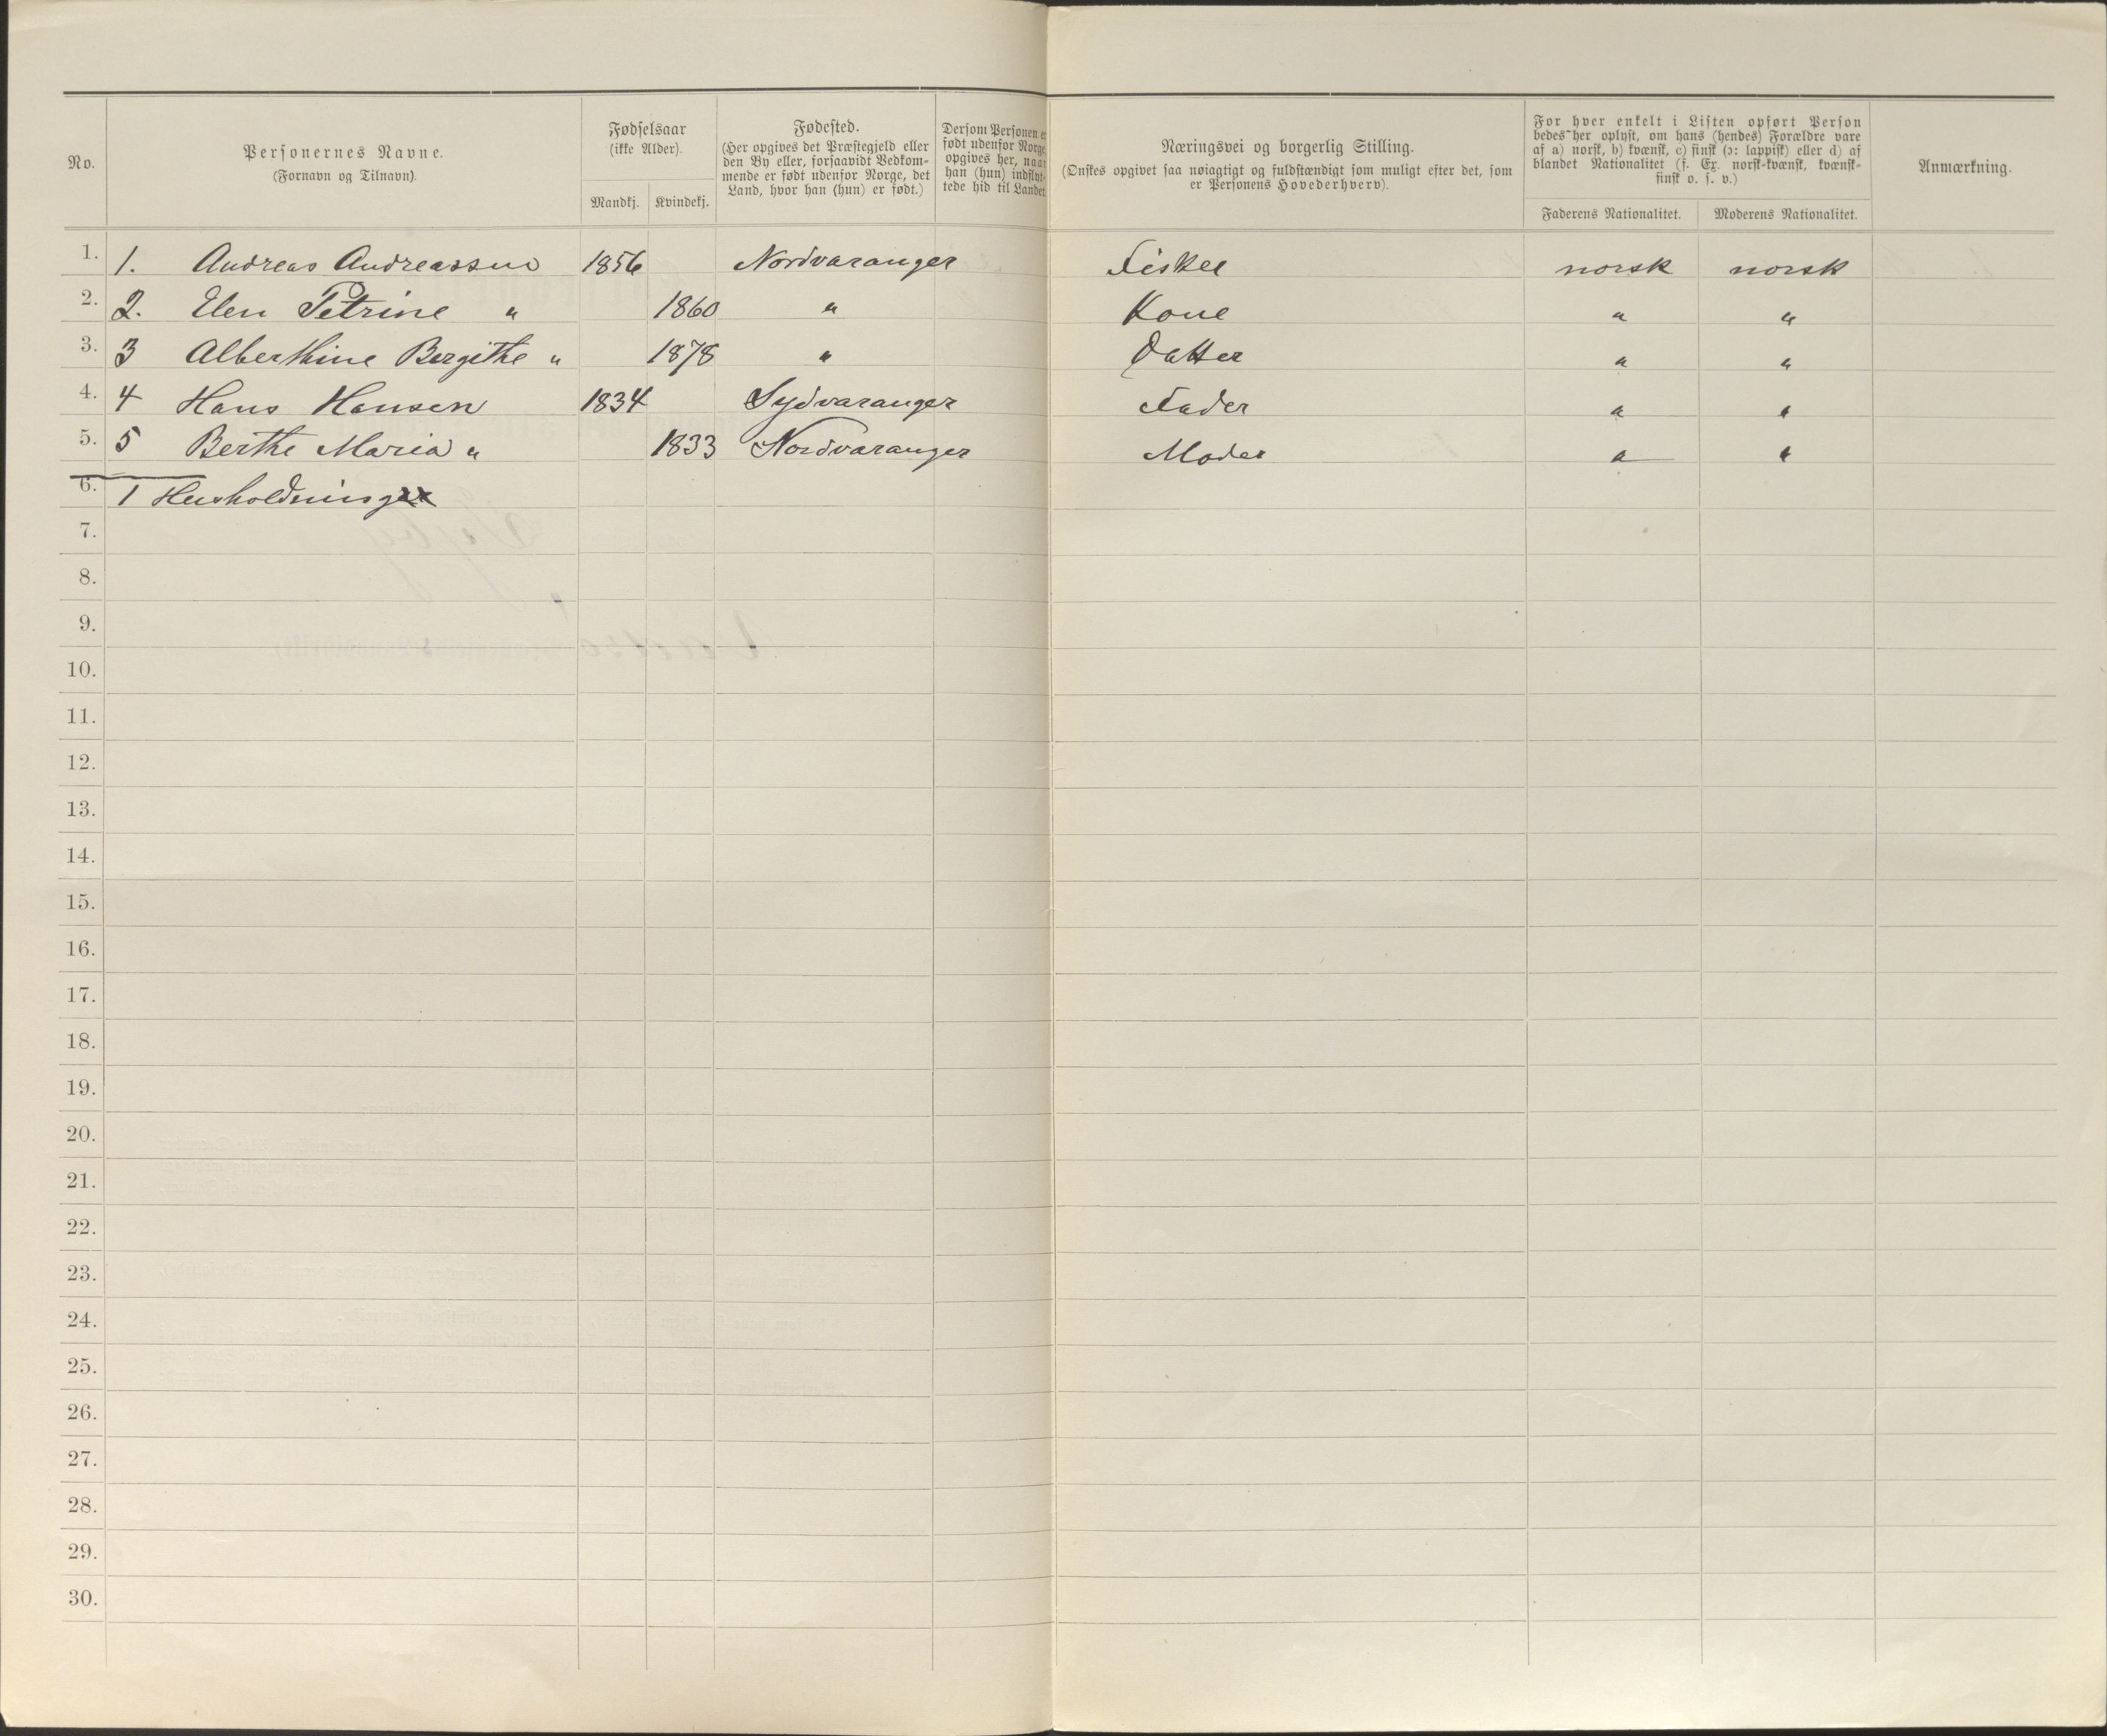 No.
Personernes Navne.
(Fornavn og Tilnavn).
Fødselsaar
(ikke Alder).
Mandkj. Kvindekj.
Fødested.
(Her opgives det Præstegjeld eller
den By eller, forsaavidt Vedkom-
mende er født udenfor Norge, det
Land, hvor han (hun) er født.)
Dersom Personen e
født udenfor Norge,
opgives her, naar
han (hun) indflyt-
tede hid til Landet
Næringsvei og borgerlig Stilling.
(Ønskes opgivet saa nøiagtigt og fuldstændigt som muligt efter det, som
er Personens Hovederhverv).
For hver enkelt i Listen opført Person
bedes her oplyst, om hans (hendes) Forældre vare
af a) norsk, b) kvænsk, c) finsk (ɔ: lappisk) eller d) af
blandet Nationalitet (f. Ex. norsk-kvænsk, kvænsk-
finsk o. s. v.)
Faderens Nationalitet. Moderens Nationalitet.
Anmærkning.
1. 1. Andreas Andreassen 1856 Nordvaranger Fisker norsk norsk
2. 2. Elen Petrine " 1860 " Kone " "
3. 3 Alberthine Bergithe " 1878 " Datter " "
4. 4 Hans Hansen 1834 Sydvaranger Fader " "
5. 5 Berthe Maria " 1833 Nordvaranger Moder " "
6. 1 Husholdning
7.
8.
9.
10.
11.
12.
13.
14.
15.
16.
17.
18.
19.
20.
21.
22.
23.
24.
25.
26.
27.
28.
29.
30.